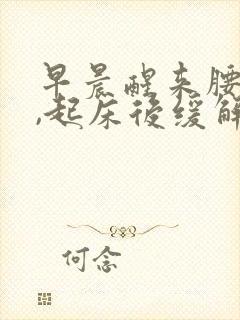 早晨醒来腰
,起床後缓解
何念